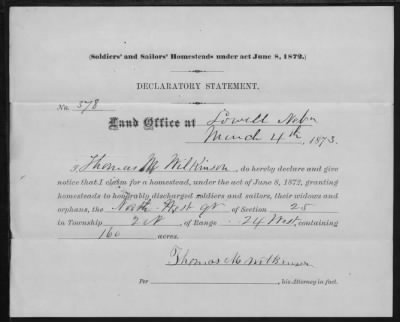 (Soldiers' and Sailors' Homesteads under act June 8, 1872.)
DECLARATORY STATEMENT.
No. 378
Land Office at Lowell Nebr
March 4th, 1873.
I, Thomas M Wilkinson, do hereby declare and give
notice that I claim for a homestead, under the act of June 8, 1872, granting
homesteads to honorably discharged soldiers and sailors, their widows and
orphans, the North West Qr of Section 25
in Township 2 N of Range 24 West, containing
160 acres.
Thomas M. Wilkinson
Per , his Attorney in fact.